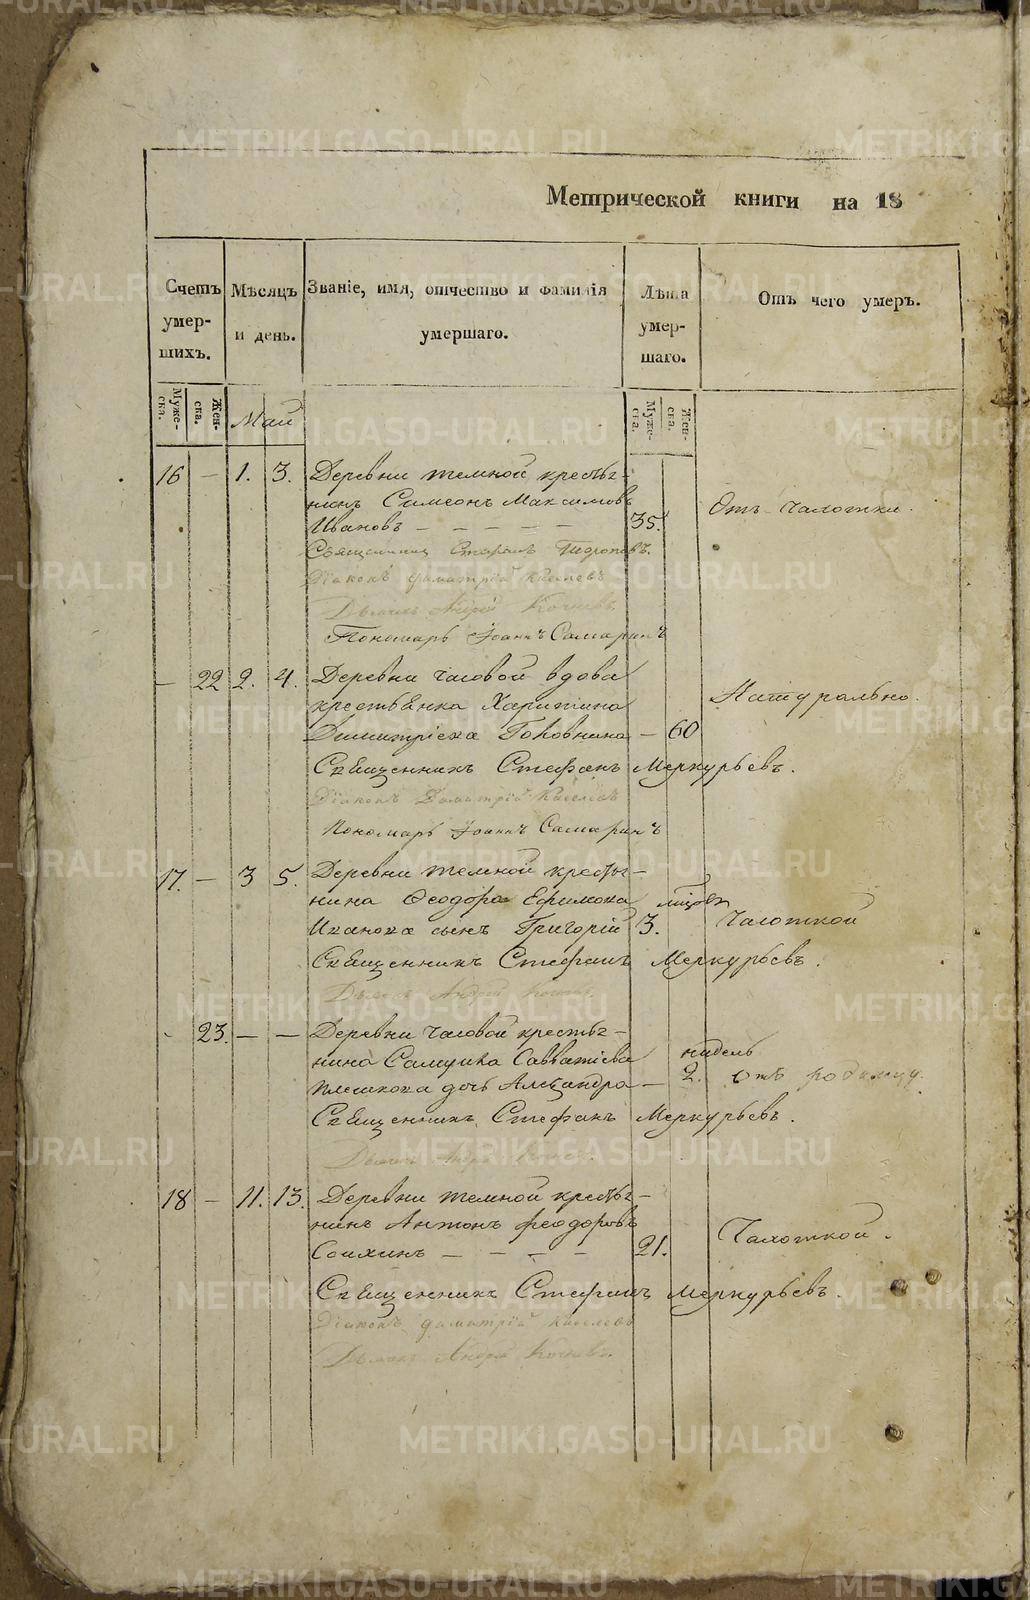 Метрической книги на 18
Счетъ умершихъ.
Мужеска.
Женска.
Мѣсяцъ и день.
Званіе, имя, отчество и фамилія умершаго.
Лѣта умершаго.
Мужеска.
Женска.
Отъ чего умеръ.
Май
16 — 1. 3. Деревни темной крестья-
нинъ Симеонъ Максимовъ
Ивановъ — — — — — 35. Отъ чахотки.
Священник Стефанъ
Діаконъ Димитрій Киселевъ
Дьячекъ Андрей
Пономарь Іоаннъ Самаринъ
— 22 2. 4. Деревни часовой вдова
крестьянка Харитина
Димитріева Головнина — 60 Натурально.
Священникъ Стефанъ Меркурьевъ.
Діаконъ Димитрій Киселевъ
Пономарь Іоаннъ Самаринъ
17. — 3 5. Деревни темной крестья-
нина Феодора Ефимова
Иванова сынъ Григорій 3. Чахоткой
Священникъ Стефанъ Меркурьевъ.
Дьячекъ Андрей
— 23. — — Деревни часовой крестья-
нина Самуила Савватіева недель
Плешкова дочь Александра — 2. отъ родимцу.
Священникъ Стефанъ Меркурьевъ.
Дьячекъ Андрей
18 — 11. 13. Деревни темной крестья-
нинъ Антонъ Феодоровъ
— — — — 21. Чахоткой.
Священникъ Стефанъ Меркурьевъ.
Діаконъ Димитрій Киселевъ
Дьячекъ Андрей
METRIKI.GASO-URAL.RU